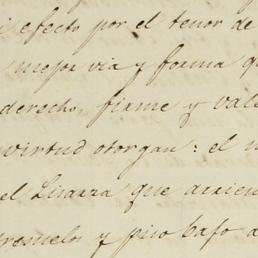 efecto por el tenor de
mejor via y forma q
derecho, firme y vale
virtud otorgan: el
el Lizarza que arrien
resuelos y piso bajo a